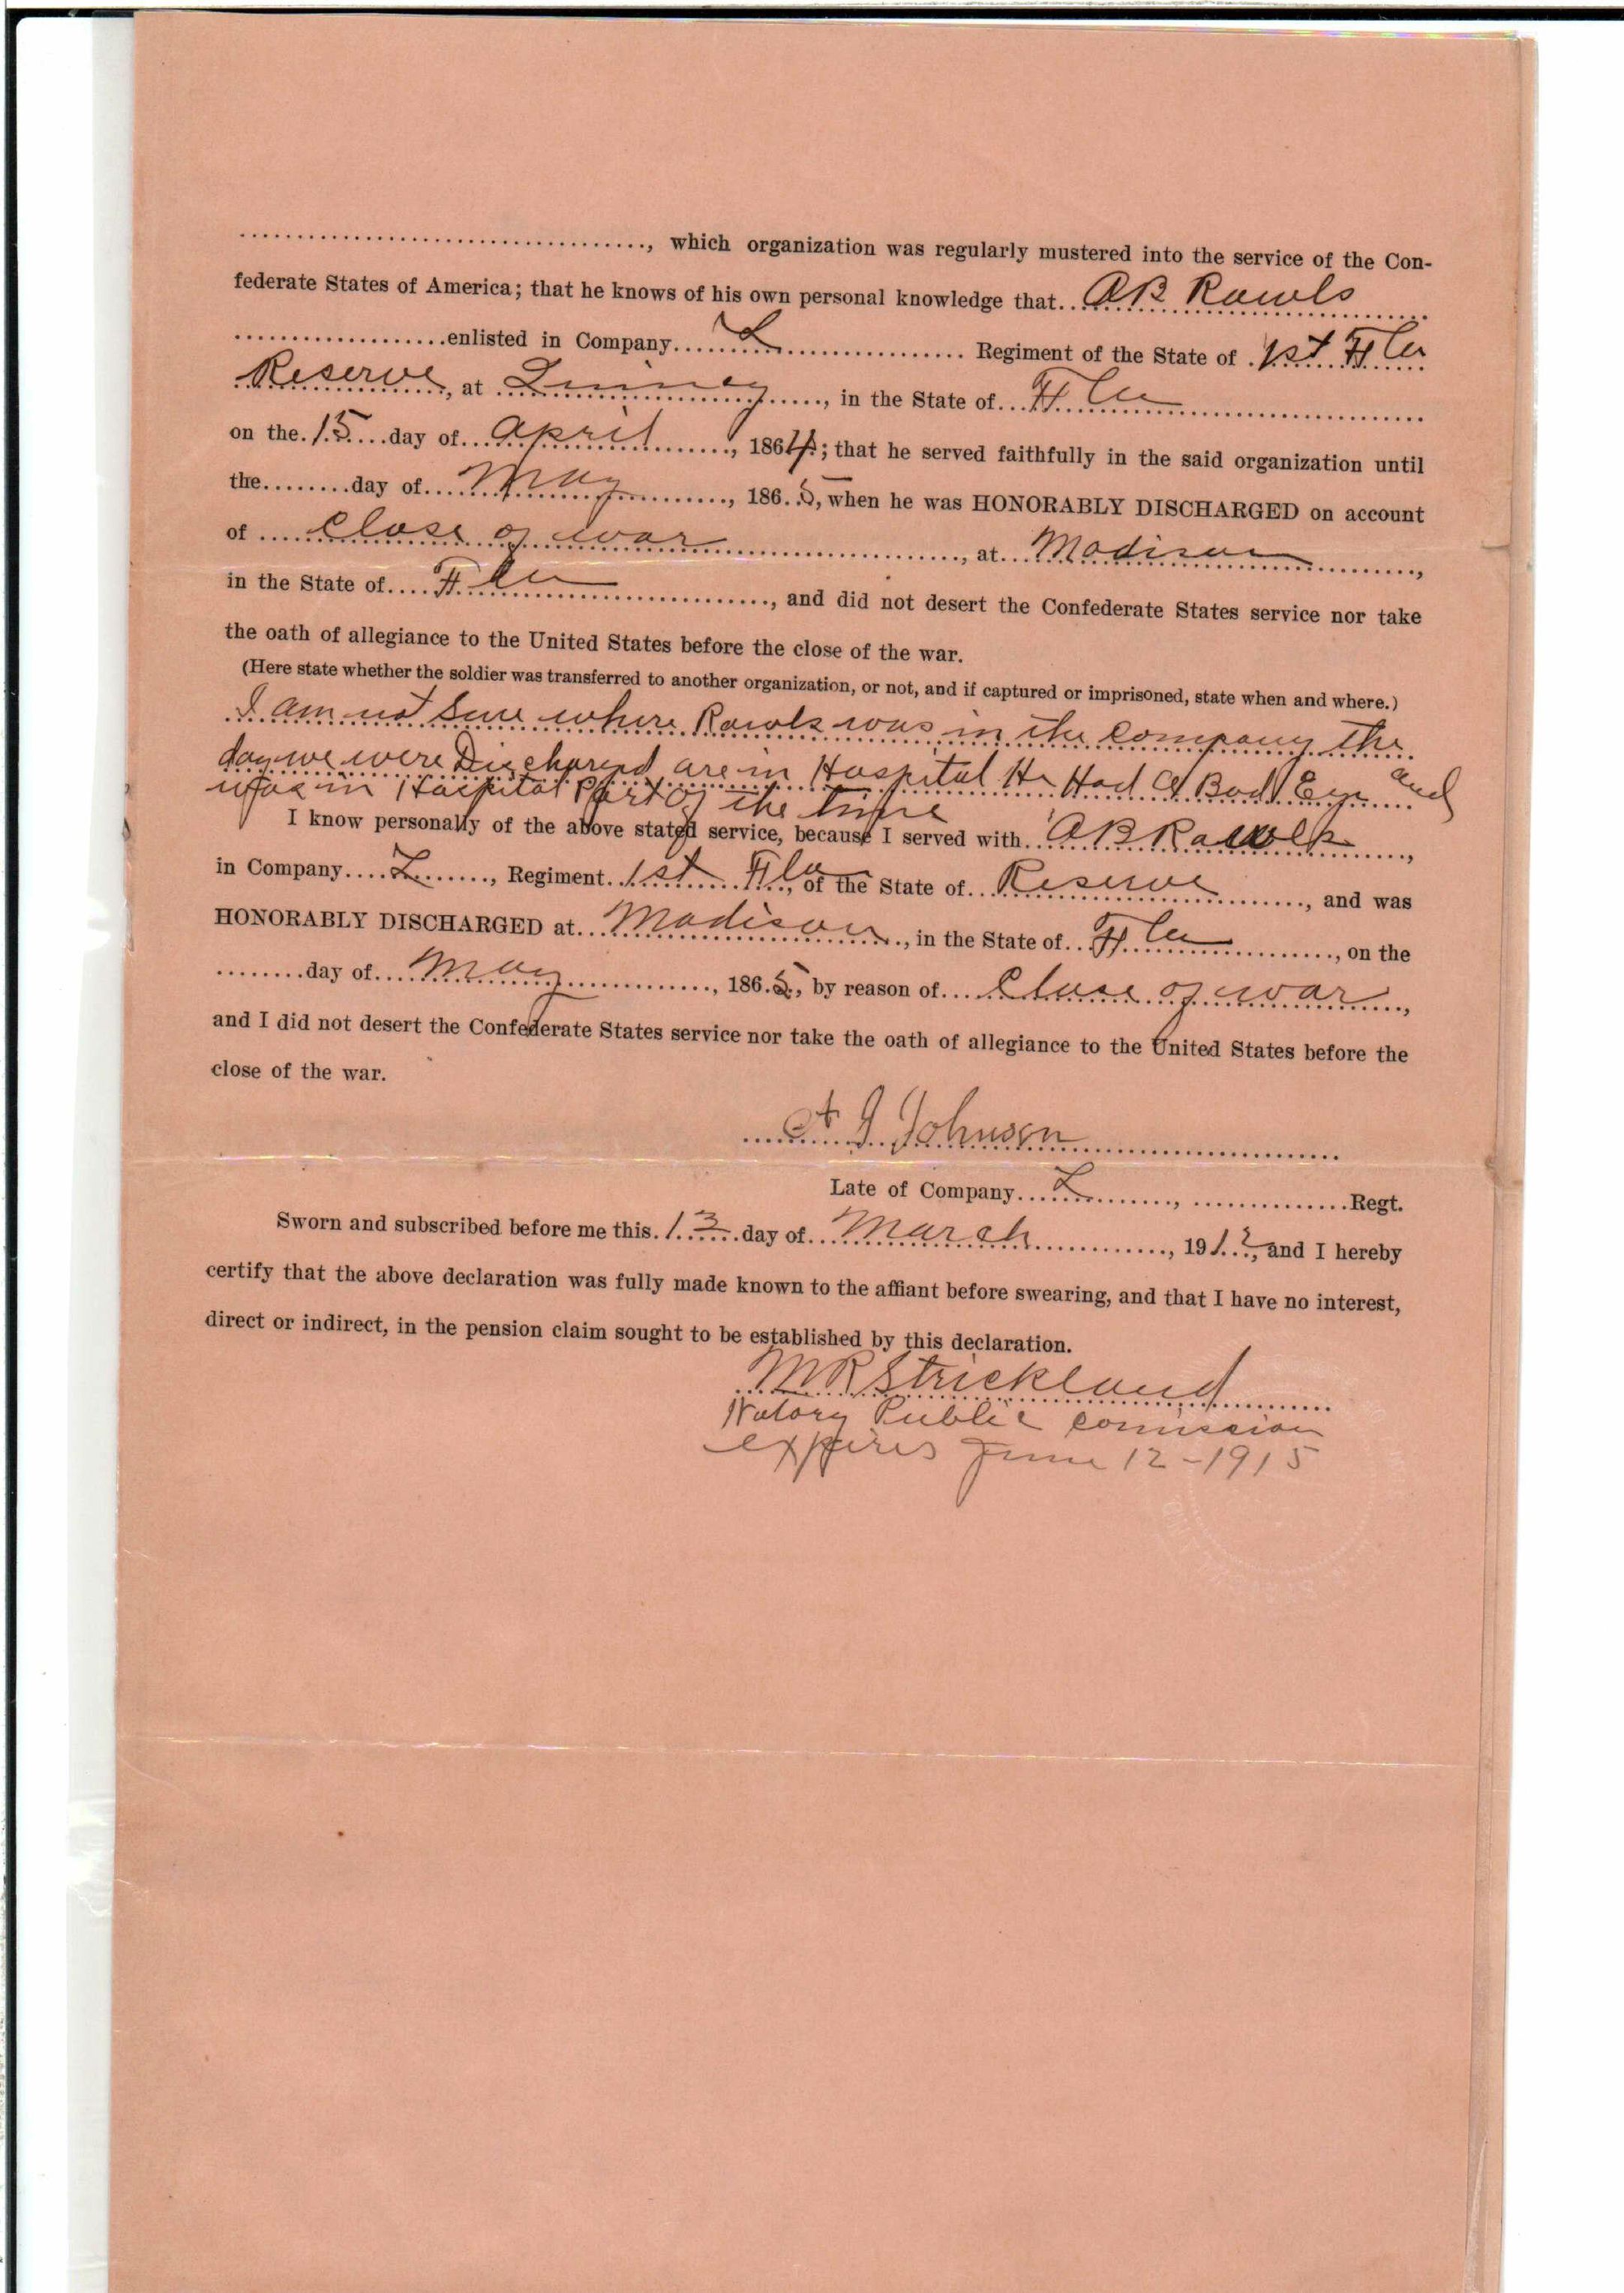 , which organization was regularly mustered into the service of the Con-
federate States of America; that he knows of his own personal knowledge that AB Rawls
enlisted in Company L Regiment of the State of 1st Fla
Reserve, at Quincy, in the State of Fla
on the 15 day of April, 1864; that he served faithfully in the said organization until
the day of May, 1865, when he was HONORABLY DISCHARGED on account
of Close of war, at Madison,
in the State of Fla, and did not desert the Confederate States service nor take
the oath of allegiance to the United States before the close of the war.
(Here state whether the soldier was transferred to another organization, or not, and if captured or imprisoned, state when and where.)
I am not Sure where Rawls was in the Company the
day we were Discharged are in Hospital He Had A Bad Eye and
was in Hospital Part of the time
I know personally of the above stated service, because I served with AB Rawls,
in Company L, Regiment 1st Fla, of the State of Reserve, and was
HONORABLY DISCHARGED at Madison, in the State of Fla, on the
day of May, 1865, by reason of Close of war,
and I did not desert the Confederate States service nor take the oath of allegiance to the United States before the
close of the war.
J Johnson
Late of Company L, Regt.
Sworn and subscribed before me this 13 day of March, 1912, and I hereby
certify that the above declaration was fully made known to the affiant before swearing, and that I have no interest,
direct or indirect, in the pension claim sought to be established by this declaration.
MR Strickland
Notary Public Comission
expires June 12-1915